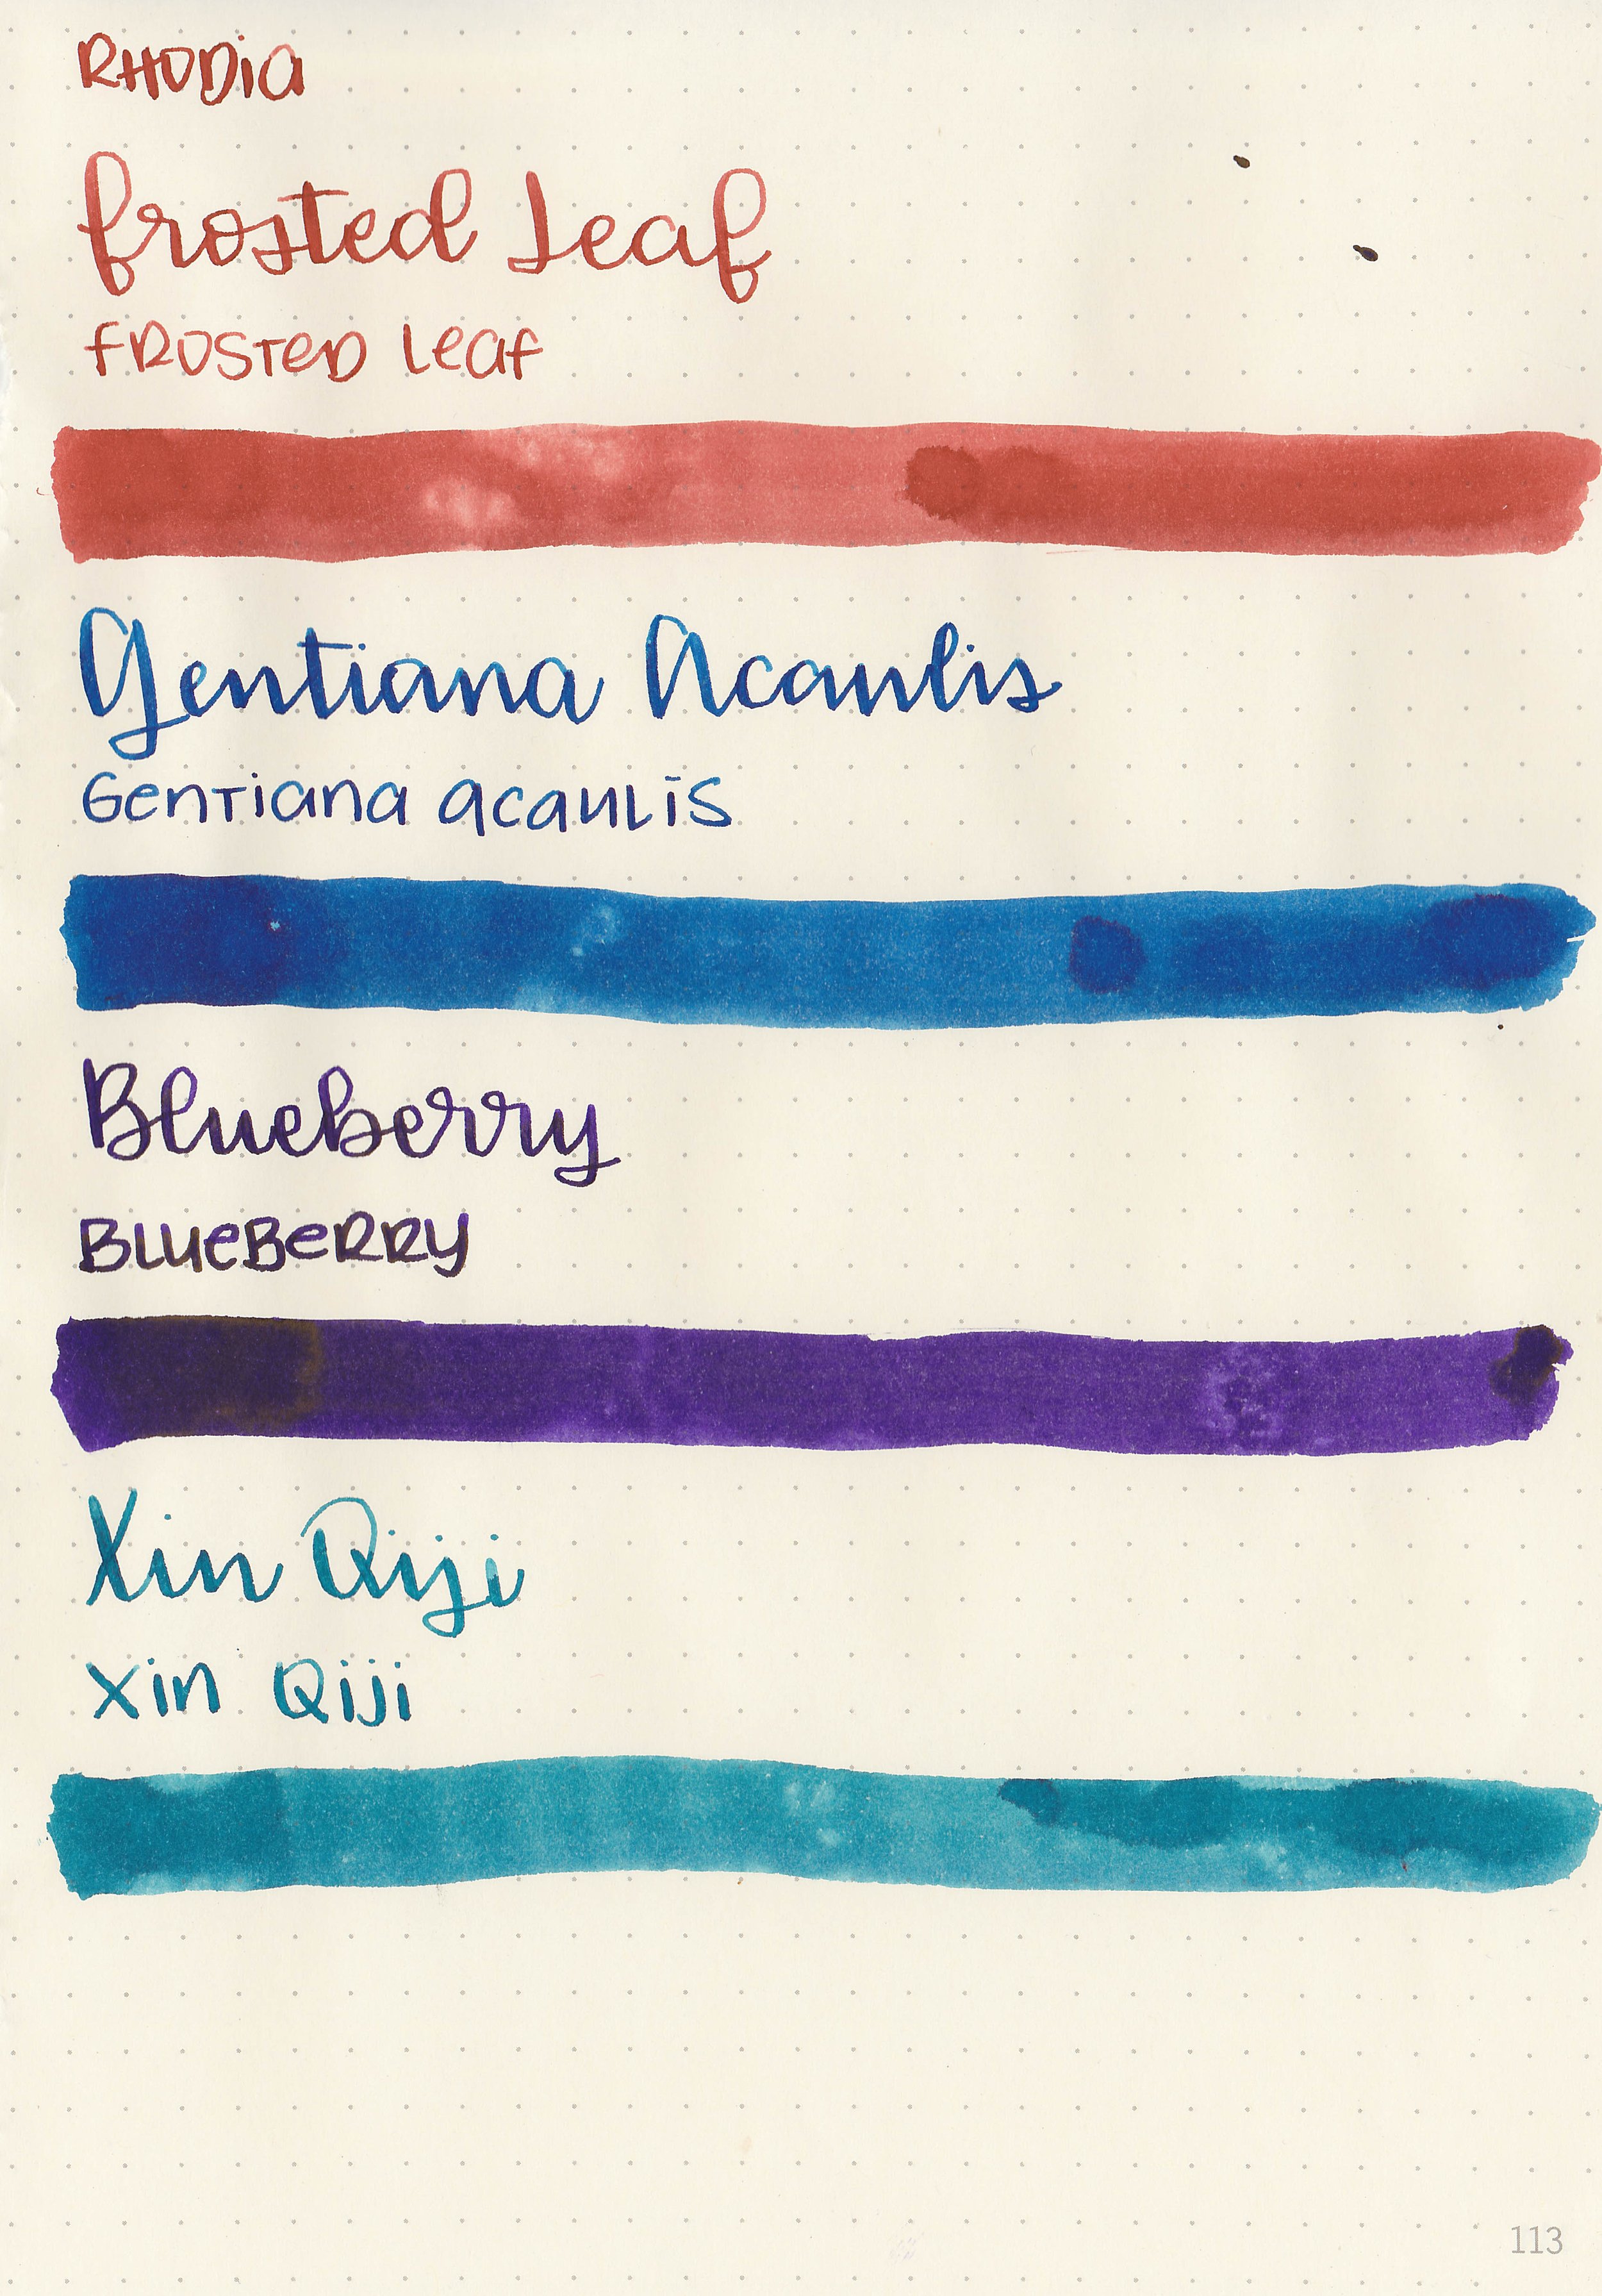 RHODia
frosted Leaf
FROSTED Leaf
Gentiana Acaulis
Gentiana acaulis
Blueberry
BLueBeRRY
Xin Qiji
Xin Qiji
113